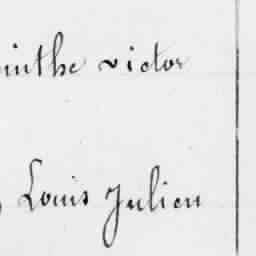 inthe victor
Louis Julien